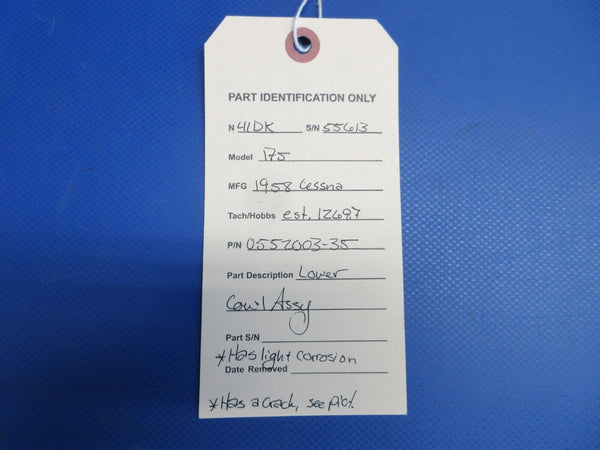 PART IDENTIFICATION ONLY
N 41DK S/N 55613
Model 175
MFG 1958 Cessna
Tach/Hobbs est. 1269.7
P/N 0552003-35
Part Description Lower
Cowl Assy
Part S/N
*Has light corrosion
Date Removed
*Has a crack, see pic.